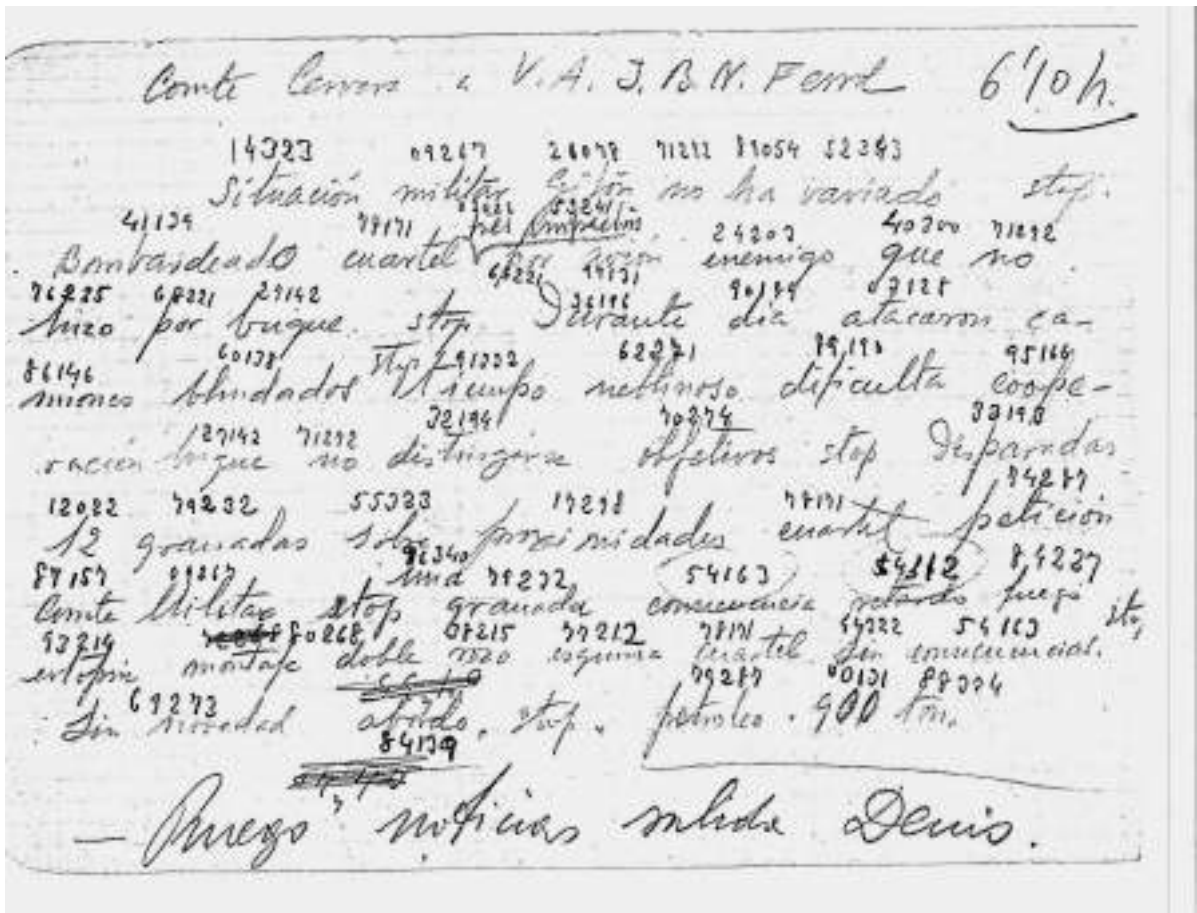 Comte Cervera a V.A. J.B.N. Ferrol 6'10 h.
14323 09267 26078 71292 52343
Situación militar Gijón no ha variado stop.
41139 78171 24203 40300 71292
Bombardeado cuartel por avión enemigo que no
76225 68221 27142 90189 03128
hizo por buque. stop. Durante día atacaron ca-
86146 60138 91332 62271 89190 95166
miones blindados stop tiempo neblinoso dificulta coope-
27142 71292 32194 70274 33198
ración buque no distingirse objetivos stop Disparadas
12022 79232 55323 17298 78171 74287
12 granadas sobre proximidades cuartel petición
87157 09267 96340 79232 54163 54112 84227
Comte Militar stop una granada consecuencia retardo fuego
93214 80268 08215 77212 78171 49322 54163 stop
estopin montaje doble rozo esquina cuartel sin consecuencias.
69273 79287 00131 88334
Sin novedad abordo. stop. petroleo. 900 ton.
84139
— Ruego noticias salida Denis.